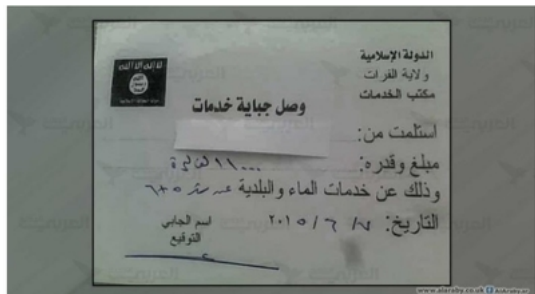 الدولة الإسلامية
ولاية الفرات
مكتب الخدمات
وصل جباية خدمات
استلمت من:
مبلغ وقدره:
وذلك عن خدمات الماء والبلدية عن شهر ٥+٦
التاريخ: ٧/ ٦ / ٢٠١٥
اسم الجابي
التوقيع
www.alaraby.co.uk